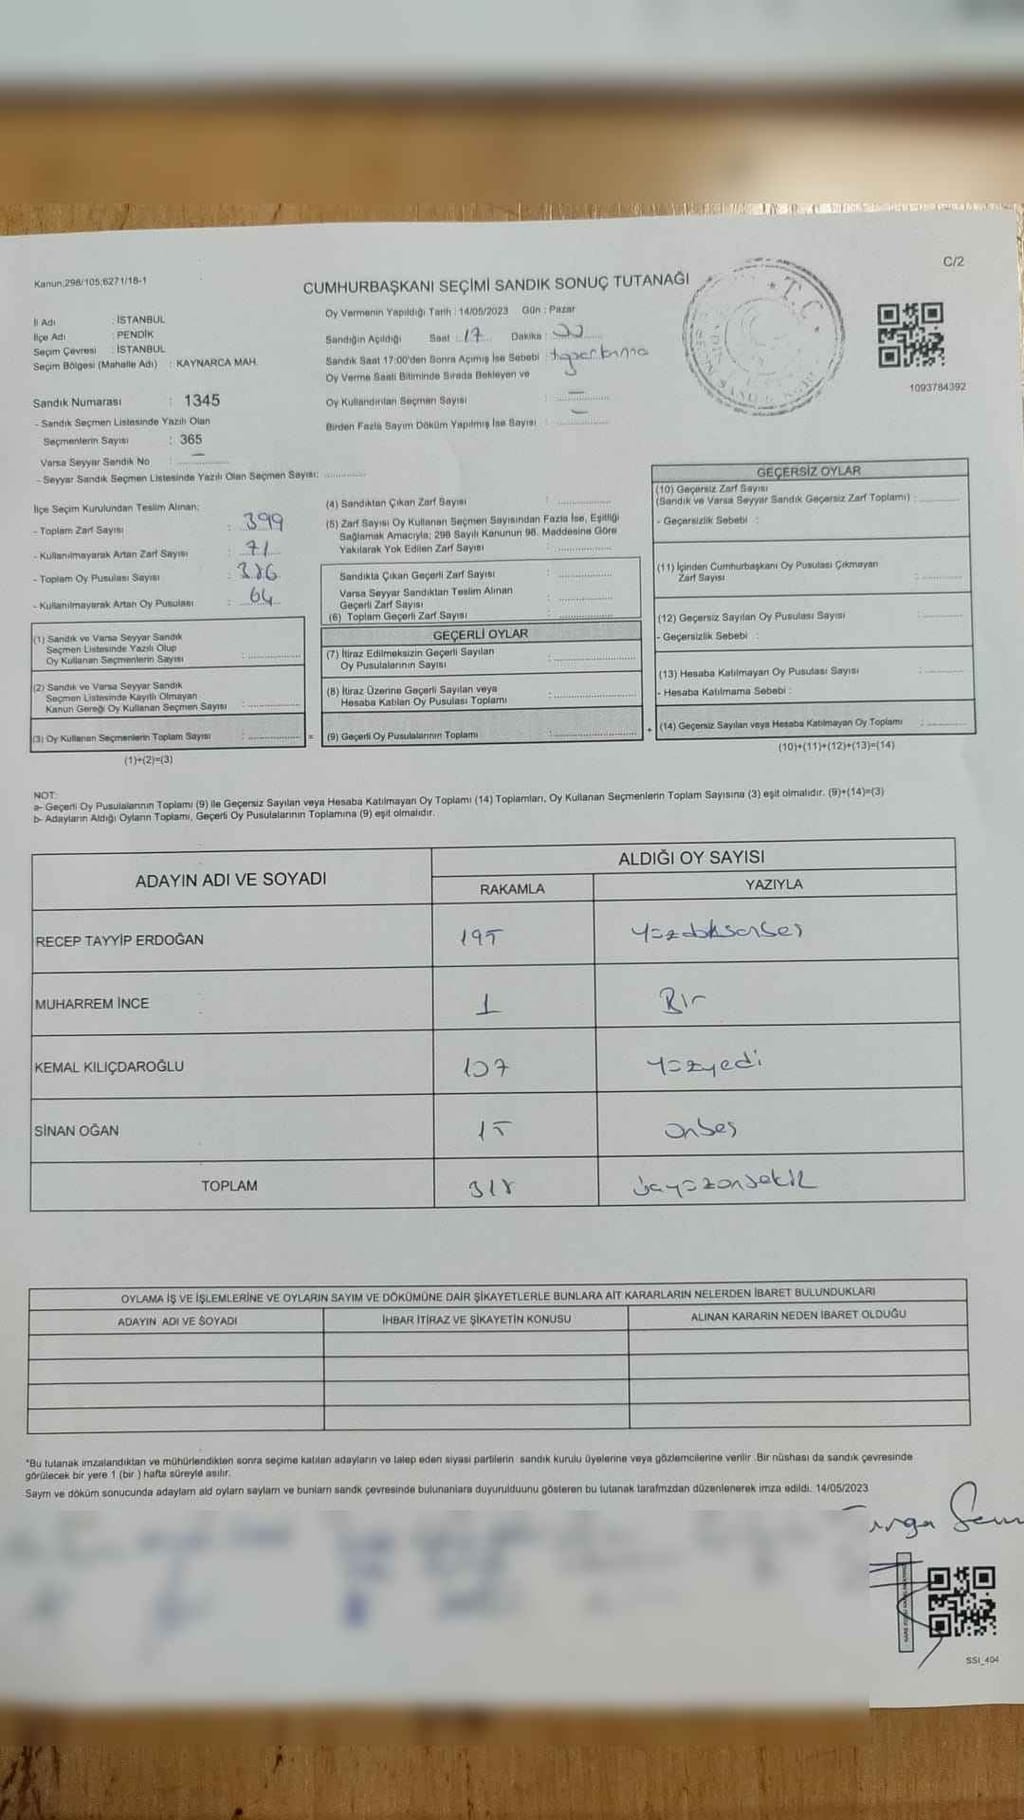 C/2
Kanun;298/105;6271/18-1
CUMHURBAŞKANI SEÇİMİ SANDIK SONUÇ TUTANAĞI
T.C.
İl Adı : İSTANBUL
İlçe Adı : PENDİK
Seçim Çevresi : İSTANBUL
Seçim Bölgesi (Mahalle Adı) : KAYNARCA MAH.
Oy Vermenin Yapıldığı Tarih : 14/05/2023 Gün : Pazar
Sandığın Açıldığı Saat : 17 Dakika :
Sandık Saat 17:00'den Sonra Açılmış İse Sebebi :
Oy Verme Saati Bitiminde Sırada Bekleyen ve
Oy Kullandırılan Seçmen Sayısı : –
Birden Fazla Sayım Döküm Yapılmış İse Sayısı : –
1093784392
Sandık Numarası : 1345
- Sandık Seçmen Listesinde Yazılı Olan
Seçmenlerin Sayısı : 365
Varsa Seyyar Sandık No : –
- Seyyar Sandık Seçmen Listesinde Yazılı Olan Seçmen Sayısı: ............
İlçe Seçim Kurulundan Teslim Alınan;
- Toplam Zarf Sayısı : 399
- Kullanılmayarak Artan Zarf Sayısı : 71
- Toplam Oy Pusulası Sayısı : 386
- Kullanılmayarak Artan Oy Pusulası : 64
(1) Sandık ve Varsa Seyyar Sandık
Seçmen Listesinde Yazılı Olup
Oy Kullanan Seçmenlerin Sayısı :
(2) Sandık ve Varsa Seyyar Sandık
Seçmen Listesinde Kayıtlı Olmayan
Kanun Gereği Oy Kullanan Seçmen Sayısı :
(3) Oy Kullanan Seçmenlerin Toplam Sayısı : =
(1)+(2)=(3)
(4) Sandıktan Çıkan Zarf Sayısı :
(5) Zarf Sayısı Oy Kullanan Seçmen Sayısından Fazla İse, Eşitliği
Sağlamak Amacıyla; 298 Sayılı Kanunun 98. Maddesine Göre
Yakılarak Yok Edilen Zarf Sayısı :
Sandıkta Çıkan Geçerli Zarf Sayısı :
Varsa Seyyar Sandıktan Teslim Alınan
Geçerli Zarf Sayısı :
(6) Toplam Geçerli Zarf Sayısı :
GEÇERLİ OYLAR
(7) İtiraz Edilmeksizin Geçerli Sayılan
Oy Pusulalarının Sayısı :
(8) İtiraz Üzerine Geçerli Sayılan veya
Hesaba Katılan Oy Pusulası Toplamı :
(9) Geçerli Oy Pusulalarının Toplamı : +
GEÇERSİZ OYLAR
(10) Geçersiz Zarf Sayısı
(Sandık ve Varsa Seyyar Sandık Geçersiz Zarf Toplamı) :
- Geçersizlik Sebebi :
(11) İçinden Cumhurbaşkanı Oy Pusulası Çıkmayan
Zarf Sayısı :
(12) Geçersiz Sayılan Oy Pusulası Sayısı :
- Geçersizlik Sebebi :
(13) Hesaba Katılmayan Oy Pusulası Sayısı :
- Hesaba Katılmama Sebebi :
(14) Geçersiz Sayılan veya Hesaba Katılmayan Oy Toplamı :
(10)+(11)+(12)+(13)=(14)
NOT:
a- Geçerli Oy Pusulalarının Toplamı (9) ile Geçersiz Sayılan veya Hesaba Katılmayan Oy Toplamı (14) Toplamları, Oy Kullanan Seçmenlerin Toplam Sayısına (3) eşit olmalıdır. (9)+(14)=(3)
b- Adayların Aldığı Oyların Toplamı, Geçerli Oy Pusulalarının Toplamına (9) eşit olmalıdır.
ADAYIN ADI VE SOYADI ALDIĞI OY SAYISI
RAKAMLA YAZIYLA
RECEP TAYYİP ERDOĞAN 195 yüzdoksanbeş
MUHARREM İNCE 1 Bir
KEMAL KILIÇDAROĞLU 107 yüzyedi
SİNAN OĞAN 15 onbeş
TOPLAM 318 üçyüzonsekiz
OYLAMA İŞ VE İŞLEMLERİNE VE OYLARIN SAYIM VE DÖKÜMÜNE DAİR ŞİKAYETLERLE BUNLARA AİT KARARLARIN NELERDEN İBARET BULUNDUKLARI
ADAYIN ADI VE SOYADI İHBAR İTİRAZ VE ŞİKAYETİN KONUSU ALINAN KARARIN NEDEN İBARET OLDUĞU
*Bu tutanak imzalandıktan ve mühürlendikten sonra seçime katılan adayların ve talep eden siyasi partilerin sandık kurulu üyelerine veya gözlemcilerine verilir. Bir nüshası da sandık çevresinde
görülecek bir yere 1 (bir ) hafta süreyle asılır.
Saym ve döküm sonucunda adaylarn ald oylarn saylarn ve bunlarn sandk çevresinde bulunanlara duyurulduunu gösteren bu tutanak tarafmzdan düzenlenerek imza edildi. 14/05/2023
SSI_404